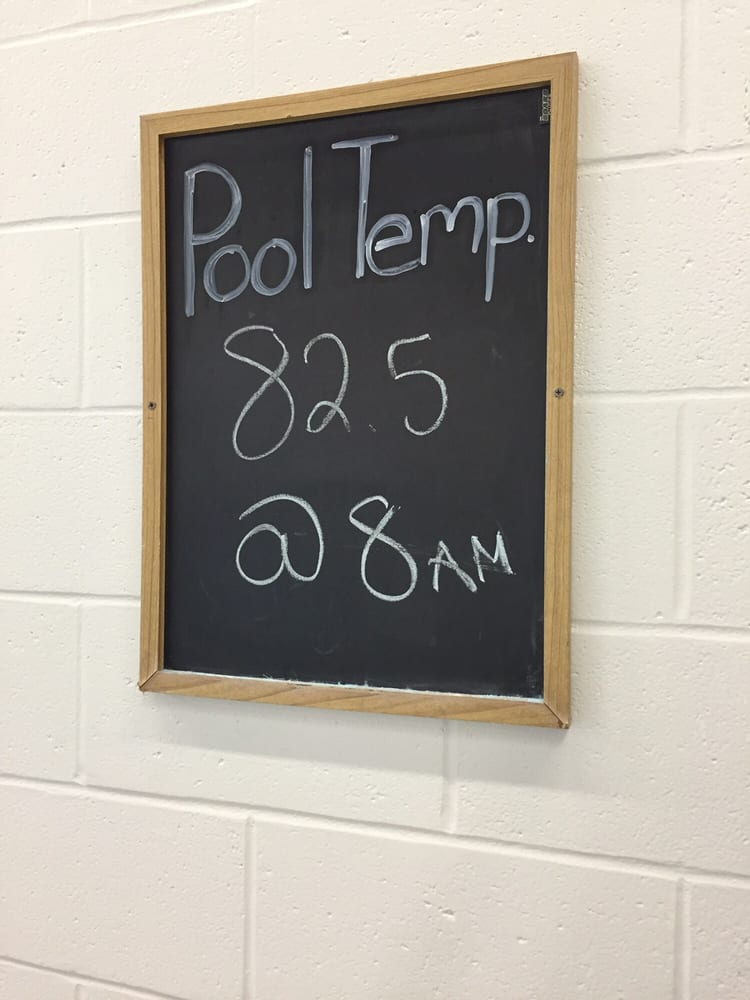 Pool Temp.
82.5
@ 8AM